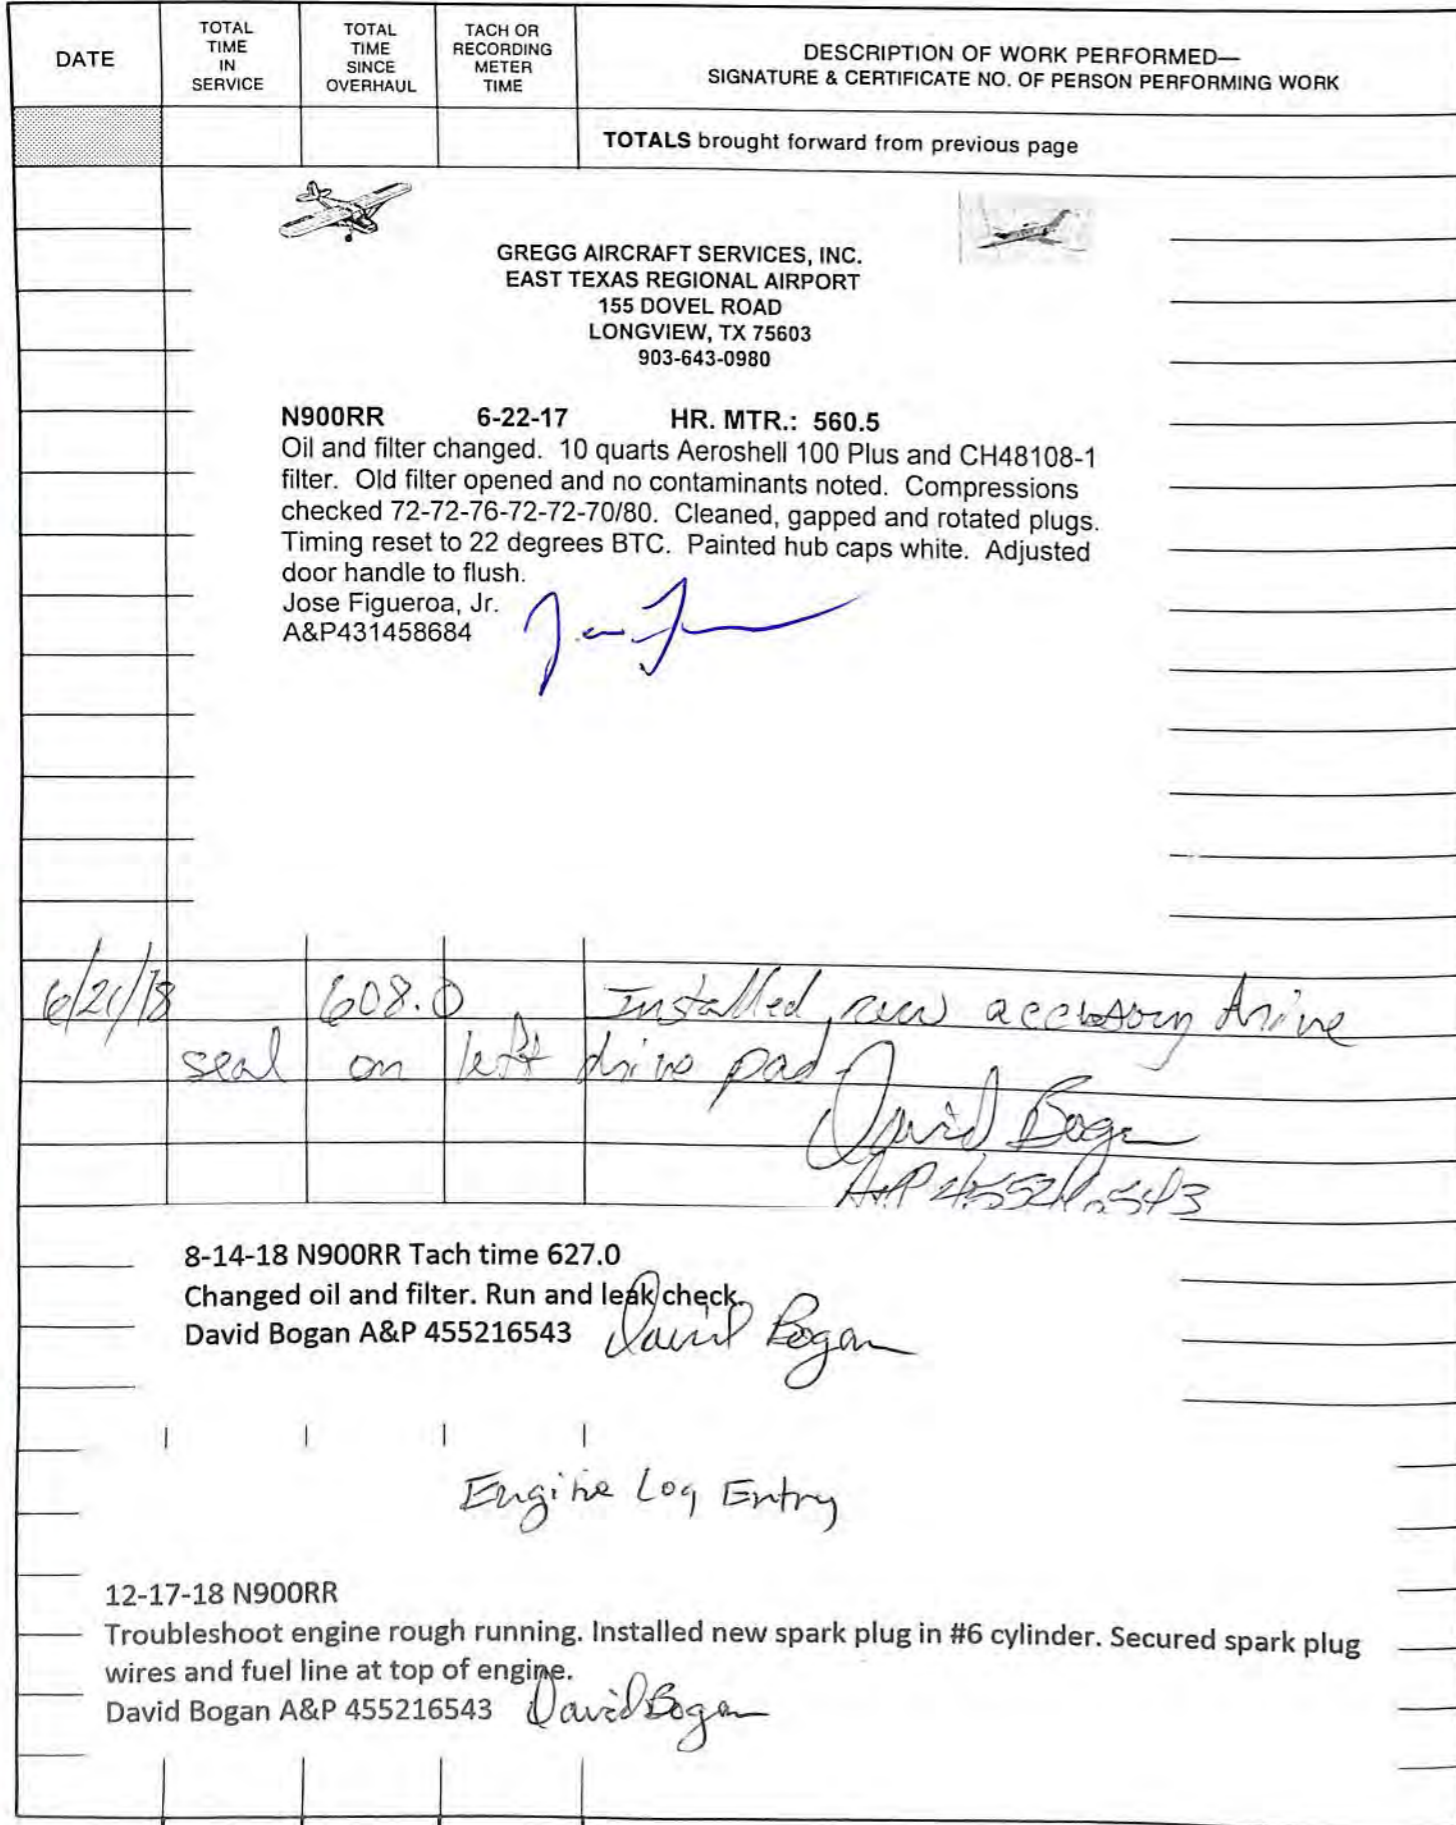 DATE
TOTAL TIME IN SERVICE
TOTAL TIME SINCE OVERHAUL
TACH OR RECORDING METER TIME
DESCRIPTION OF WORK PERFORMED—
SIGNATURE & CERTIFICATE NO. OF PERSON PERFORMING WORK
TOTALS brought forward from previous page
GREGG AIRCRAFT SERVICES, INC.
EAST TEXAS REGIONAL AIRPORT
155 DOVEL ROAD
LONGVIEW, TX 75603
903-643-0980
N900RR 6-22-17 HR. MTR.: 560.5
Oil and filter changed. 10 quarts Aeroshell 100 Plus and CH48108-1
filter. Old filter opened and no contaminants noted. Compressions
checked 72-72-76-72-72-70/80. Cleaned, gapped and rotated plugs.
Timing reset to 22 degrees BTC. Painted hub caps white. Adjusted
door handle to flush.
Jose Figueroa, Jr.
A&P431458684
6/21/18 608.0 Installed new accessory drive
seal on left drive pad
David Bogan
A&P 455216543
8-14-18 N900RR Tach time 627.0
Changed oil and filter. Run and leak check.
David Bogan A&P 455216543 David Bogan
Engine Log Entry
12-17-18 N900RR
Troubleshoot engine rough running. Installed new spark plug in #6 cylinder. Secured spark plug
wires and fuel line at top of engine.
David Bogan A&P 455216543 David Bogan